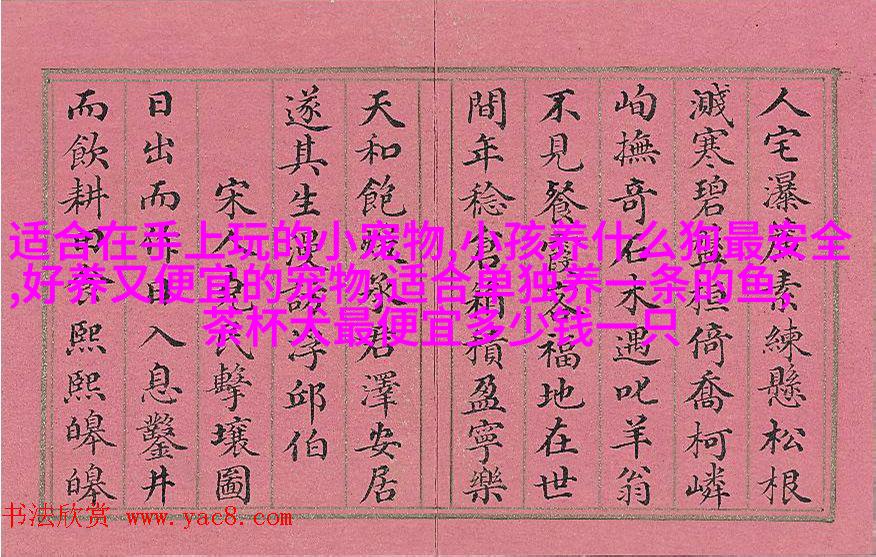 人宅瀑素練懸松根
濺寒碧盤桓倚喬柯嶙
峋撫奇石木遇叱羊翁
不見餐霞友福地在世
間年稔倉箱積盈寧樂
天和飽承君澤安居
遂其生漫說浮邱伯
宋人堯民擊壤圖
日出而作日入息鑿井
而飲耕田食熙熙皞皞
适合在手上玩的小宠物,小孩养什么狗最安全
,好养又便宜的宠物,适合单独养一条的鱼,
茶杯犬最便宜多少钱一只
书法欣赏 www.yac8.com